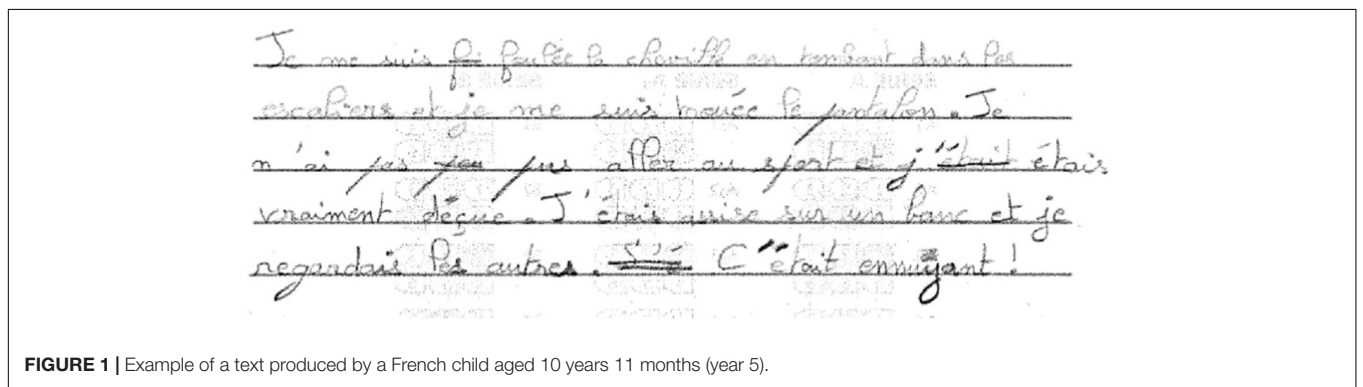 Je me suis fi foulée la cheville en tombant dans les
escaliers et je me suis trouée le pantalon. Je
n'ai pas peu pus aller au sport et j'était étais
vraiment déçue. J'étais assise sur un banc et je
regardais les autres. S'é C'était ennuyant !
FIGURE 1 | Example of a text produced by a French child aged 10 years 11 months (year 5).